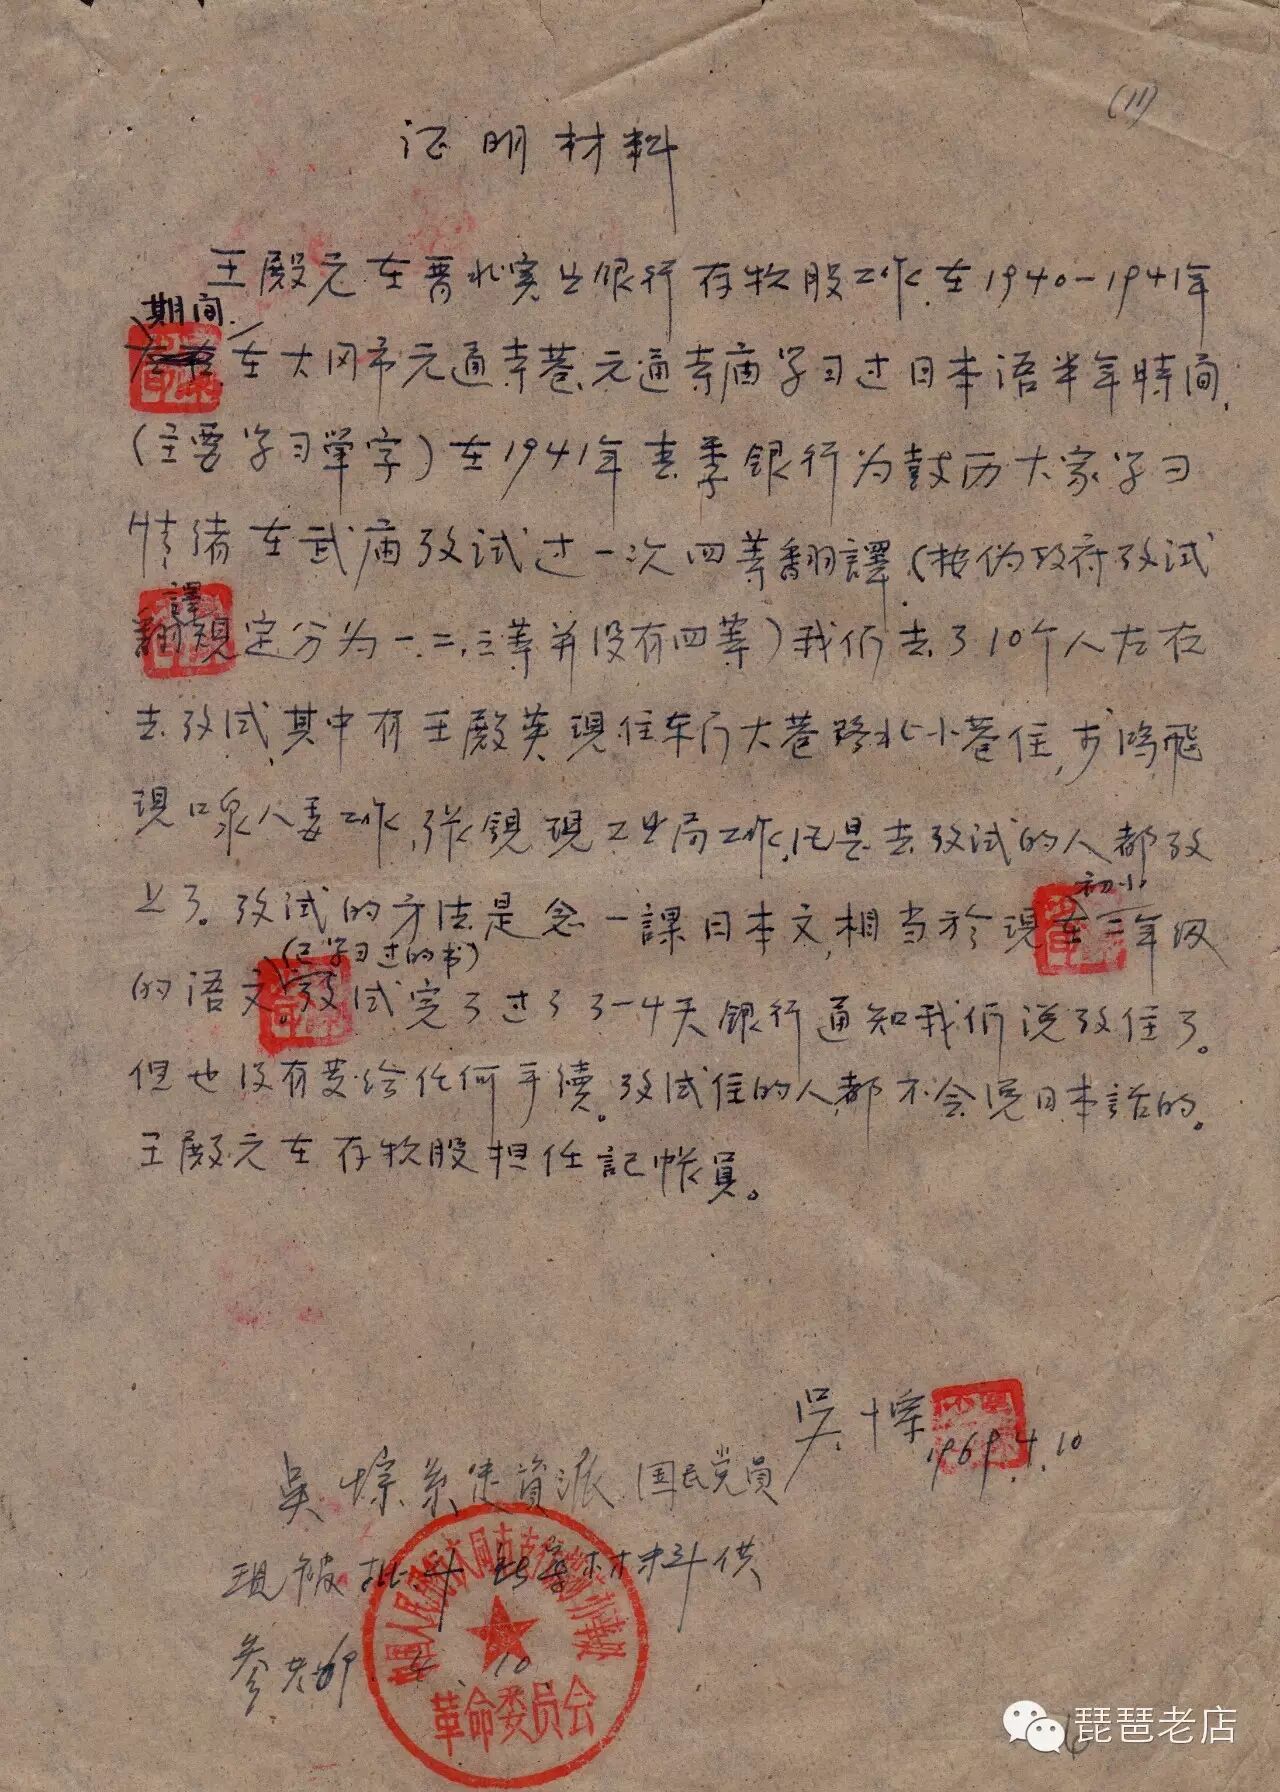 (11)
证明材料
王殿元在晋北实业银行存款股工作.在1940-1941年
期间.
在大同市元通寺巷.元通寺庙学习过日本语半年時间.
(主要学习单字)在1941年春季銀行为鼓历大家学习
情绪在武庙攷試过一次四等翻譯(按伪政府攷試
譯
翻規定分为一.二.三等并没有四等)我们去了10个人左右
去攷試.其中有王殿英現住车门大巷路北小巷住,步鸿飛
現口泉人委工作,張鏡現工业局工作.凡是去攷試的人都攷
上了。攷試的方法是念一課日本文,相当於現在二年级
初小
的语文攷試完了过了3-4天銀行通知我们说攷住了。
(已学习过的书)
但也没有发给任何手續。攷試住的人都不会说日本話的。
王殿元在存款股担任記帐員。
吴悰
1969.4.10
吴悰系走資派.国民党員
現被批斗 材料供
参考 4.10
中国人民銀行大同市支行
革命委员会
琵琶老店